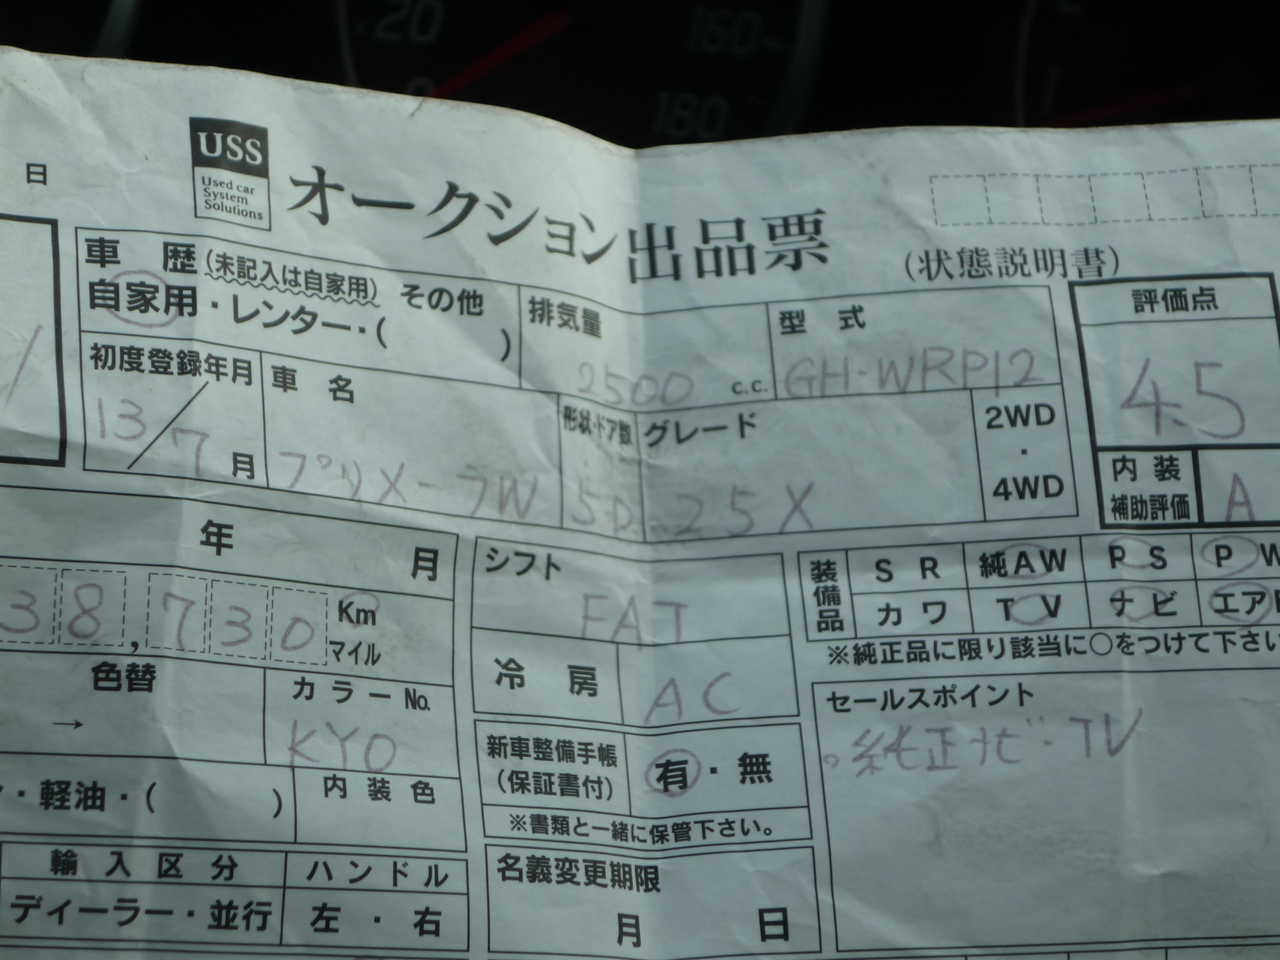 20
160
0
180
USS
Used car
System
Solutions
日
オークション出品票
(状態説明書)
車 歴 (未記入は自家用)
自家用・レンター・( ) その他
排気量
2500 c.c.
型 式
GH-WRP12
評価点
4.5
初度登録年月
13/7月
車 名
プリメーラW
形状・ドア数
5D
グレード
25X
2WD
・
4WD
内 装
補助評価
A
年 月
38,730
Km
マイル
シフト
FAT
装備品
S R
純AW
P S
P W
カ ワ
T V
ナ ビ
エア
※純正品に限り該当に○をつけて下さい
冷 房
AC
色替
→
カラーNo.
KY0
セールスポイント
○純正ナビ・TV
新車整備手帳
(保証書付)
有・無
・軽油・( )
内 装 色
※書類と一緒に保管下さい。
輸 入 区 分
ハ ン ド ル
名義変更期限
月 日
ディーラー・並行
左 ・ 右